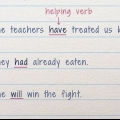 helping verb
he teachers have treated us
hey had already eaten.
he will win the fight.